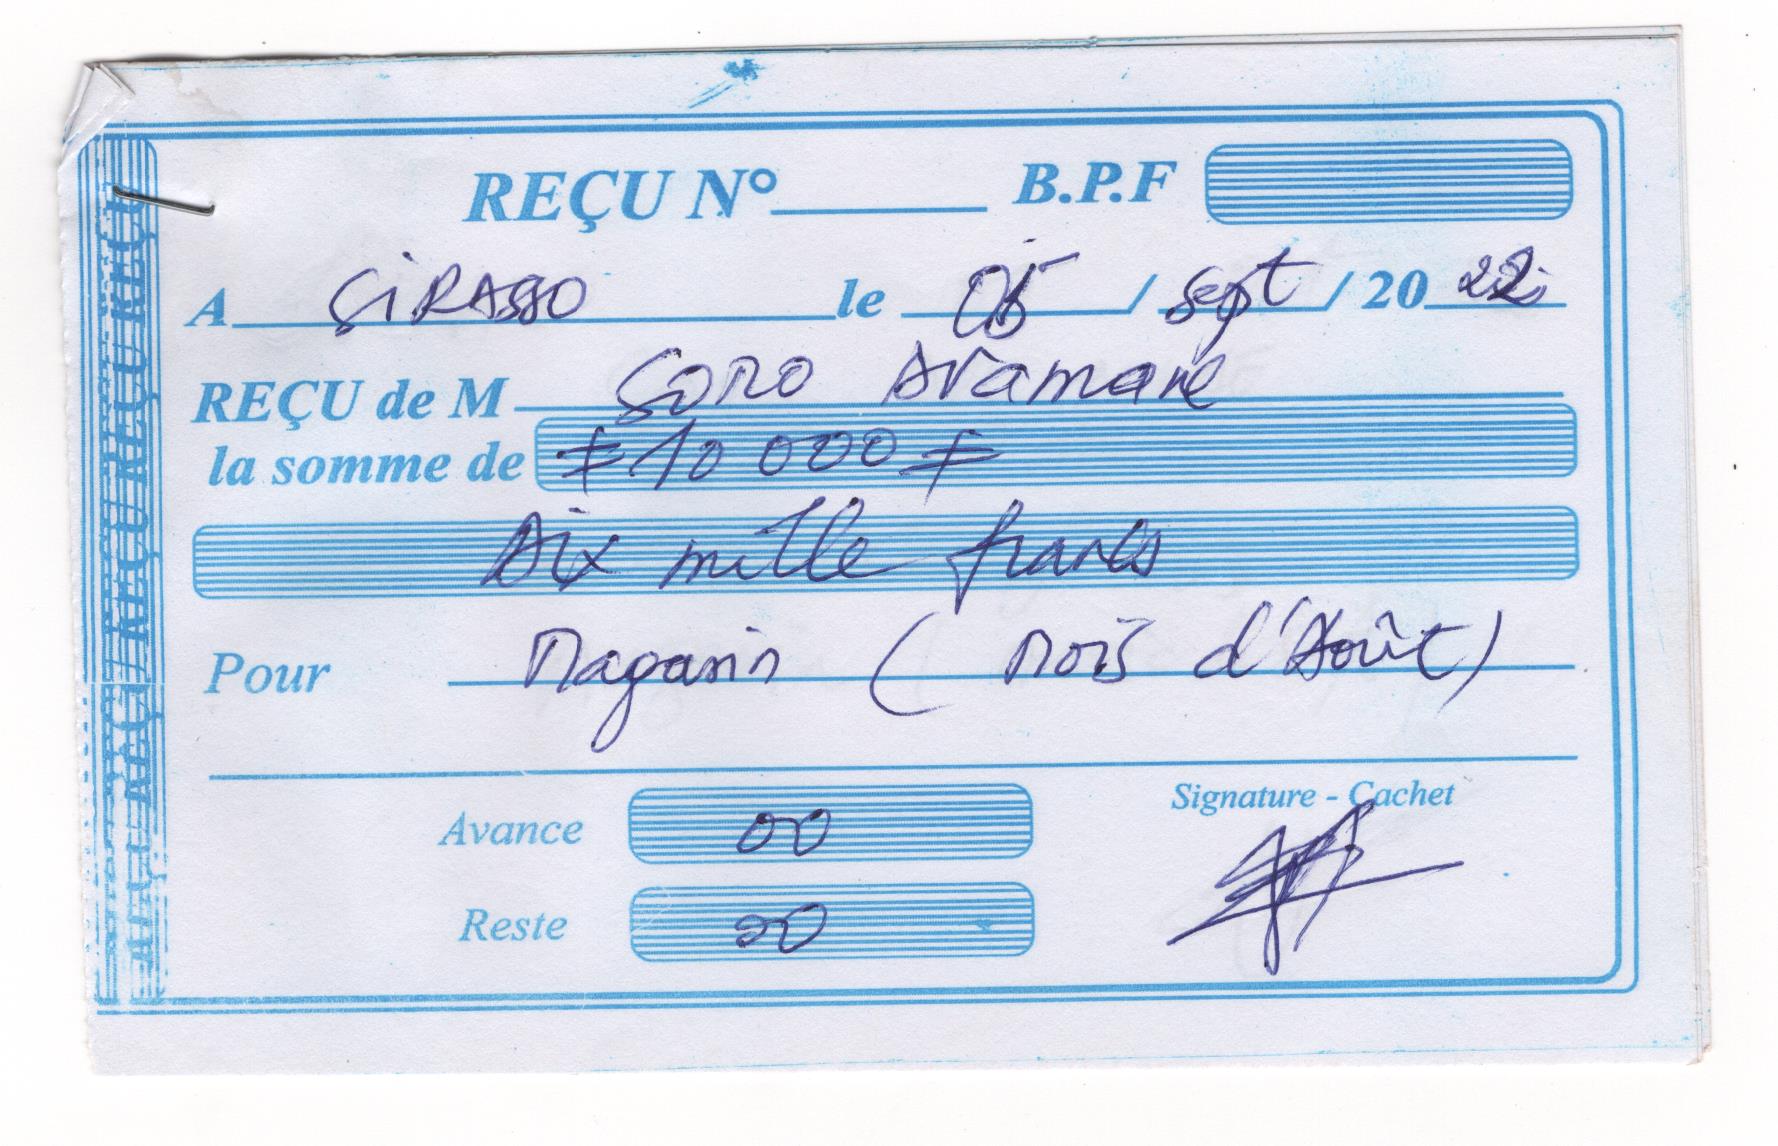 REÇU N° B.P.F
A SIRASSO le 05 / Sept / 20 22
REÇU de M SORO Aramane
la somme de # 10 000 #
Dix mille francs
Pour Magasin ( Mois d'Août )
Signature - Cachet
Avance 00
Reste 00